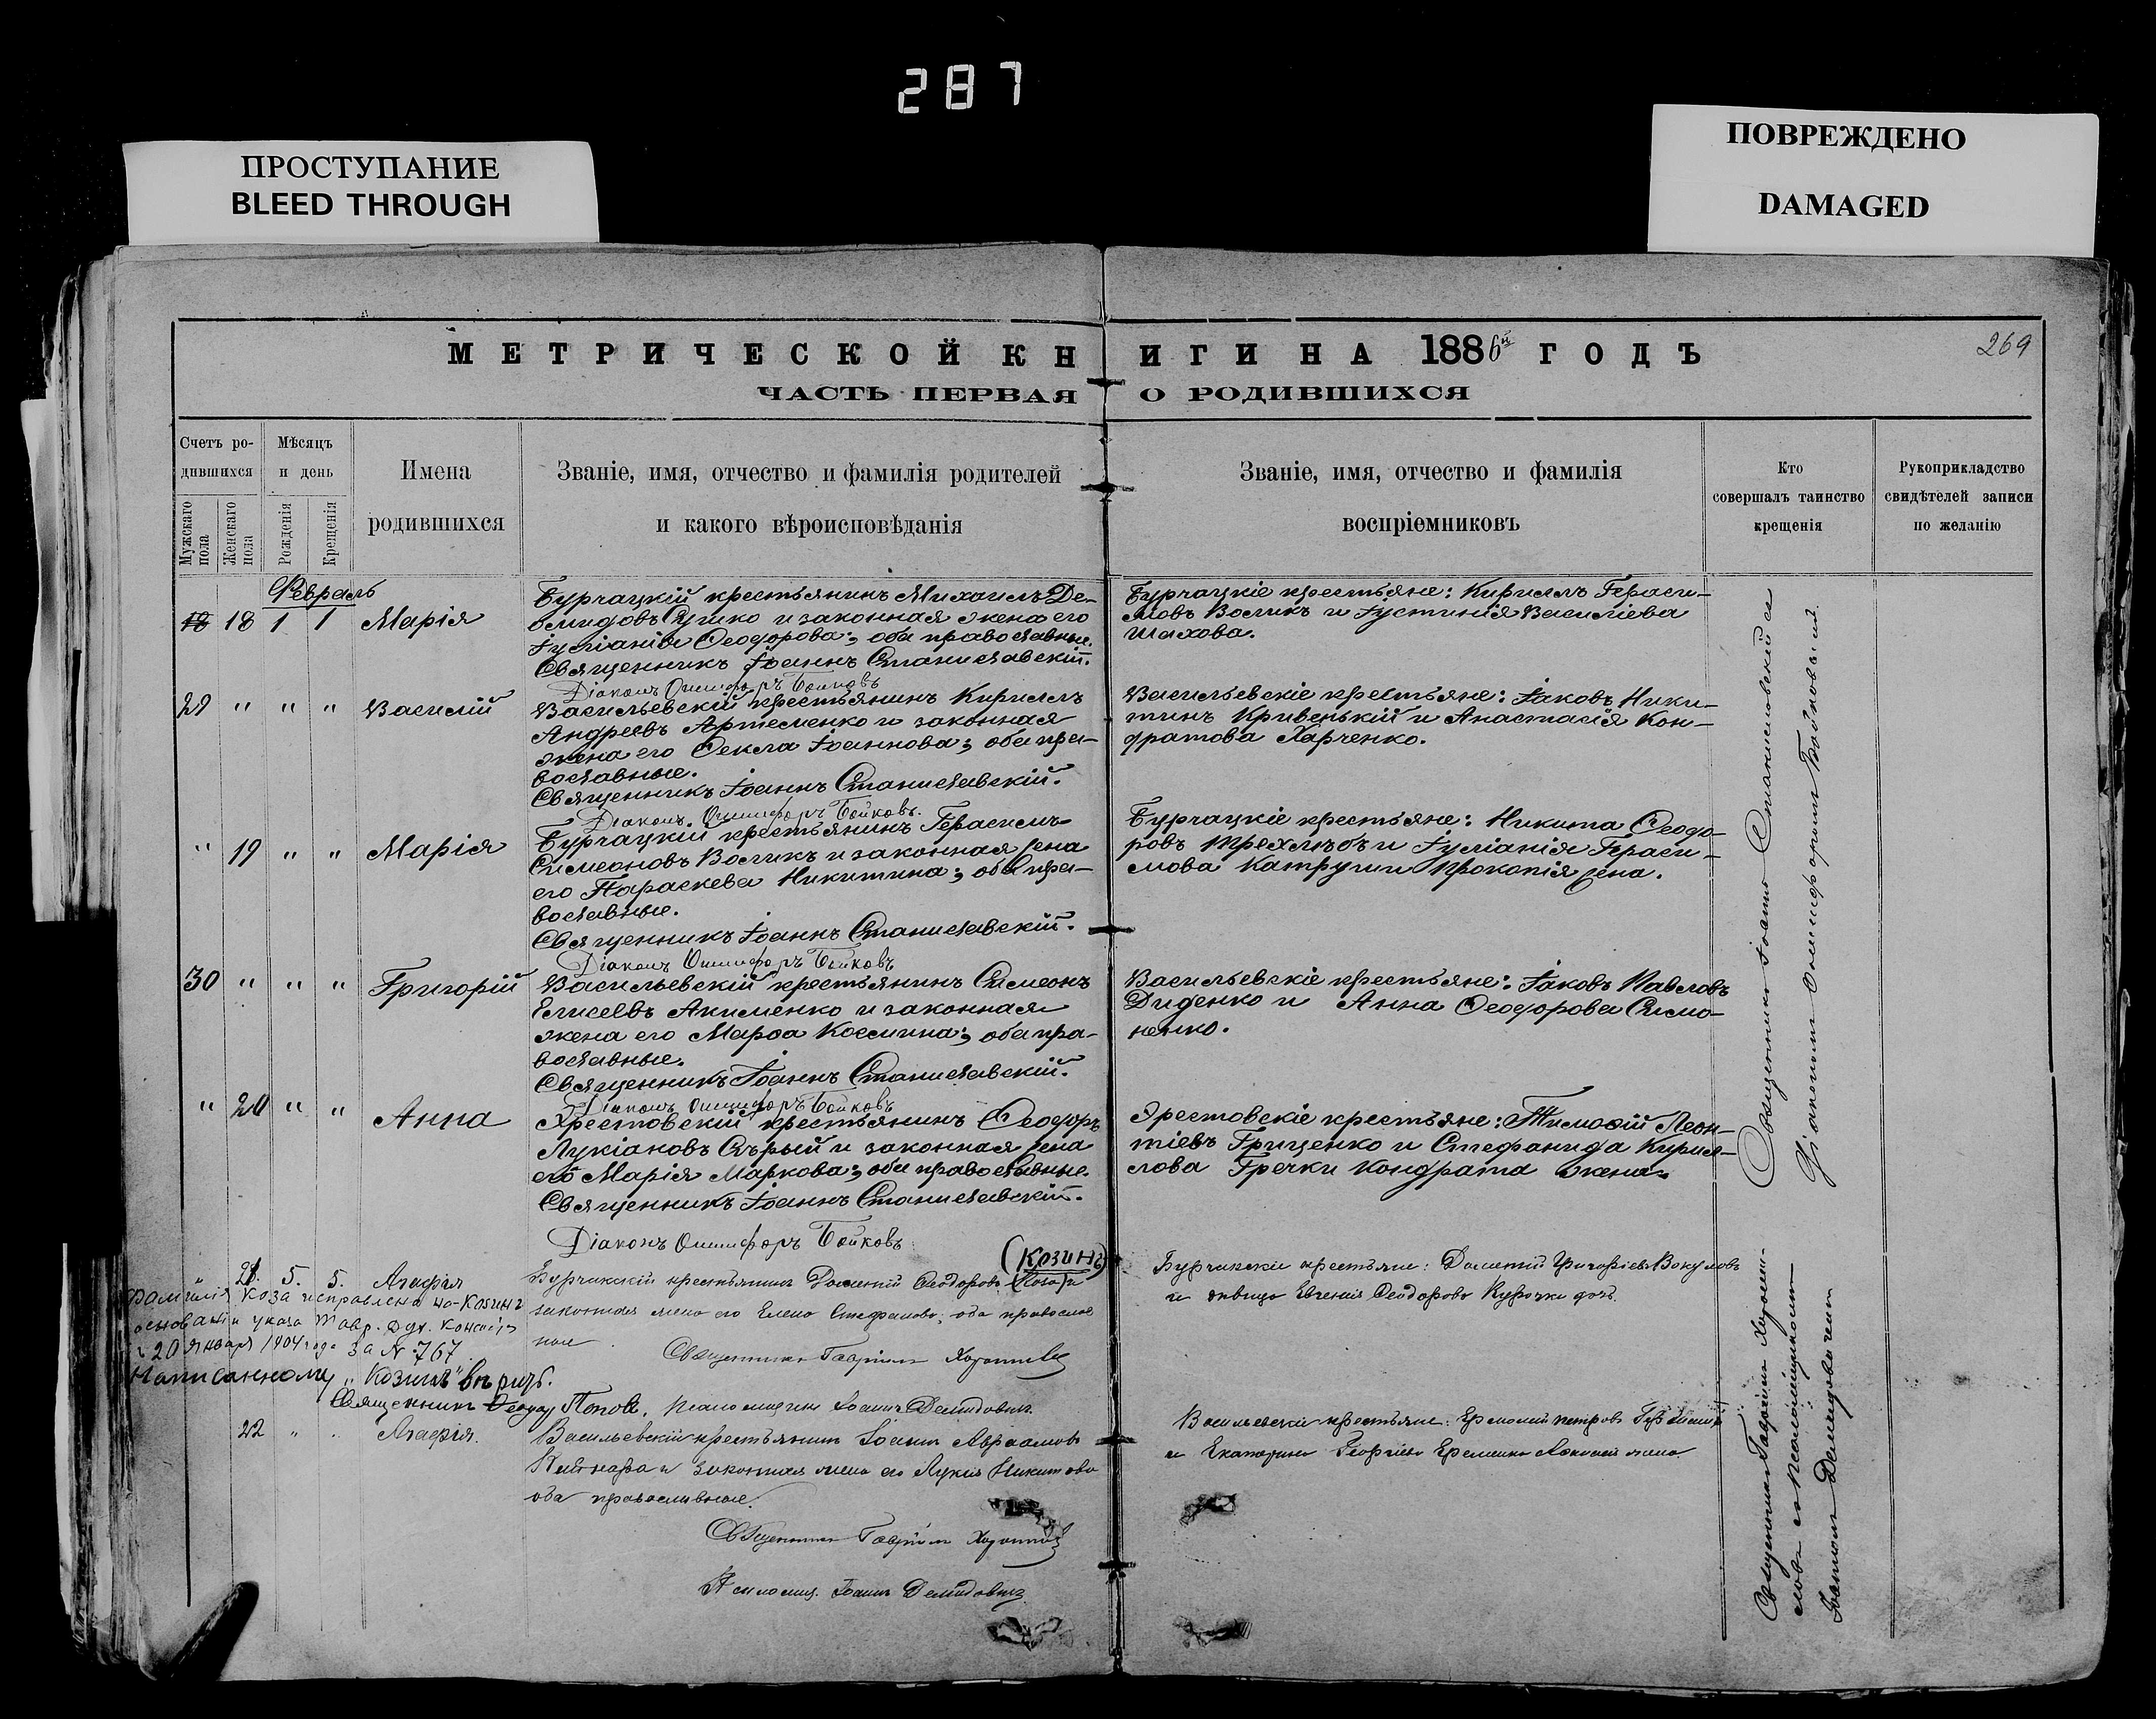 287
ПРОСТУПАНИЕ
BLEED THROUGH
ПОВРЕЖДЕНО
DAMAGED
МЕТРИЧЕСКОЙ КНИГИ НА 1886й ГОДЪ
269
ЧАСТЬ ПЕРВАЯ О РОДИВШИХСЯ
Счетъ ро-
дившихся
Мужскаго пола
Женскаго пола
Мѣсяцъ
и день
Рожденія
Крещенія
Имена
родившихся
Званіе, имя, отчество и фамилія родителей
и какого вѣроисповѣданія
Званіе, имя, отчество и фамилія
воспріемниковъ
Кто
совершалъ таинство
крещенія
Рукоприкладство
свидѣтелей записи
по желанію
Февраль
18 18 1 1 Марія
Бурчацкій крестьянинъ Михаилъ Де-
мидовъ и законная жена его
Іуліанія Ѳеодорова; оба православные.
Священникъ Іоаннъ Станиславскій.
Діаконъ Онисифоръ Бойковъ
Бурчацкіе крестьяне: Кириллъ Гераси-
мовъ Воликъ и Іустинія Василіева
Шахова.
29 " " " Василій
Васильевскій крестьянинъ Кириллъ
Андреевъ Артеменко и законная
жена его Ѳекла Іоаннова; оба пра-
вославные.
Священникъ Іоаннъ Станиславскій.
Діаконъ Онисифоръ Бойковъ.
Васильевскіе крестьяне: Іаковъ Ники-
тинъ Кривенькій и Анастасія Кон-
дратова Харченко.
" 19 " " Марія
Бурчацкій крестьянинъ Герасимъ
Симеоновъ Воликъ и законная жена
его Параскева Никитина; оба пра-
вославные.
Священникъ Іоаннъ Станиславскій.
Діаконъ Онисифоръ Бойковъ
Бурчацкіе крестьяне: Никита Ѳеодо-
ровъ Трехлѣбъ и Іуліанія Гераси-
мова Катруши Прокопія жена.
30 " " " Григорій
Васильевскій крестьянинъ Симеонъ
Елисеевъ Акименко и законная
жена его Марѳа Космина; оба пра-
вославные.
Священникъ Іоаннъ Станиславскій.
Діаконъ Онисифоръ Бойковъ
Васильевскіе крестьяне: Іаковъ Павловъ
Диденко и Анна Ѳеодорова Симо-
ненко.
" 20 " " Анна
крестьянинъ Ѳеодоръ
Лукіановъ Сѣрый и законная жена
его Марія Маркова; оба православные.
Священникъ Іоаннъ Станиславскій.
Діаконъ Онисифоръ Бойковъ
крестьяне: Тимоѳій Леон-
тіевъ Гриценко и Стефанида Кирил-
лова Гречки Кондрата жена.
21. 5. 5. Агафія
крестьянинъ Ѳеодоровъ Коза и
(Козинъ)
законная жена его Елена Стефанова, оба православ
ные
Священникъ Гавріилъ
крестьяне: Григоріевъ
и дѣвица Евгенія Ѳеодорова дочь.
Фамилія Коза исправлена на Козинъ
основаніи указа Тавр. дух. Консист.
20 Января 1904 года за № 767.
Написанному "Козинъ" вѣрить.
Священникъ Ѳеодоръ Поповъ. Псаломщикъ Іоаннъ Демидовичъ
22 " " Агафія.
Васильевскій крестьянинъ Іоаннъ Авраамовъ
и законная жена его Лукія Никитова
оба православные.
Священникъ Гавріилъ
Псаломщ. Іоаннъ Демидовичъ
Васильевскіе крестьяне: Ермолай Петровъ
и Екатерина Георгіева Еременко жена.
Священникъ Іоаннъ Станиславскій съ
Діакономъ Онисифоромъ Бойковымъ
Священникъ Гавріилъ
съ псаломщикомъ
Іоанномъ Демидовичемъ